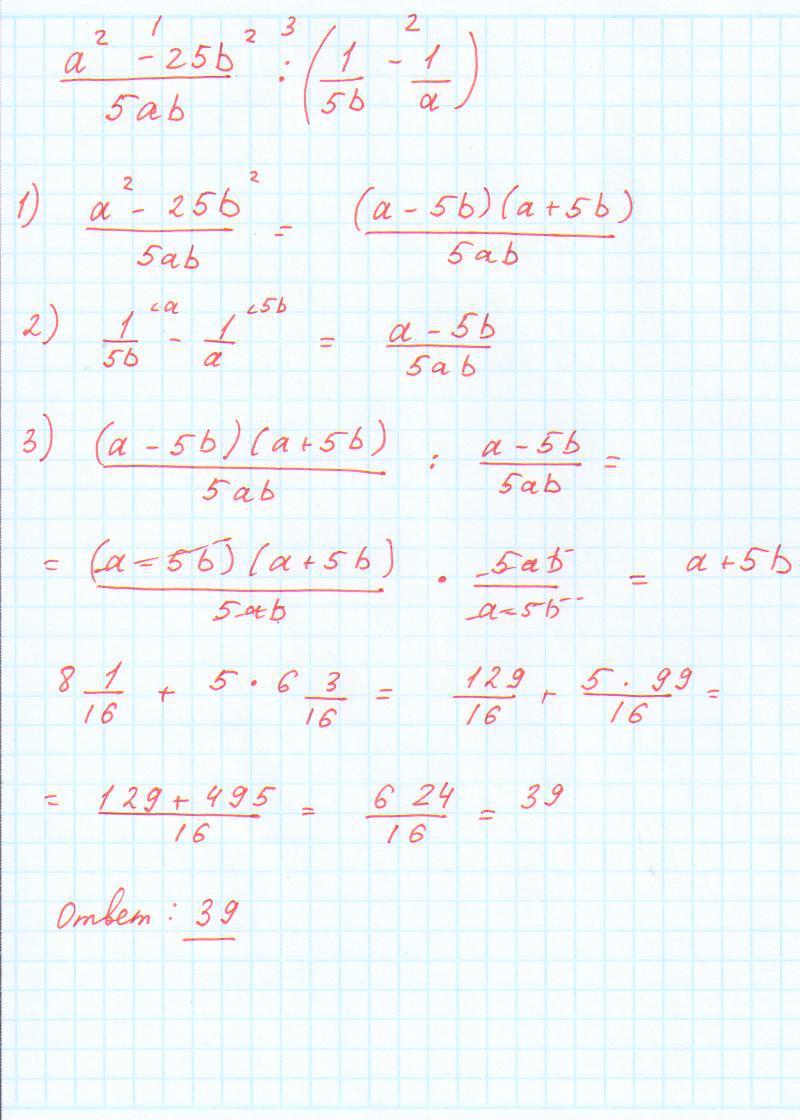 1 2 3
(a² - 25b²)/(5ab) : (1/(5b) - 1/a)
1) (a² - 25b²)/(5ab) = ((a - 5b)(a + 5b))/(5ab)
2) 1/(5b) ⁽ᵃ - 1/a ⁽⁵ᵇ = (a - 5b)/(5ab)
3) ((a - 5b)(a + 5b))/(5ab) : (a - 5b)/(5ab) =
= ((a - 5b)(a + 5b))/(5ab) · (5ab)/(a - 5b) = a + 5b
8 1/16 + 5 · 6 3/16 = 129/16 + (5 · 99)/16 =
= (129 + 495)/16 = 624/16 = 39
Ответ: 39